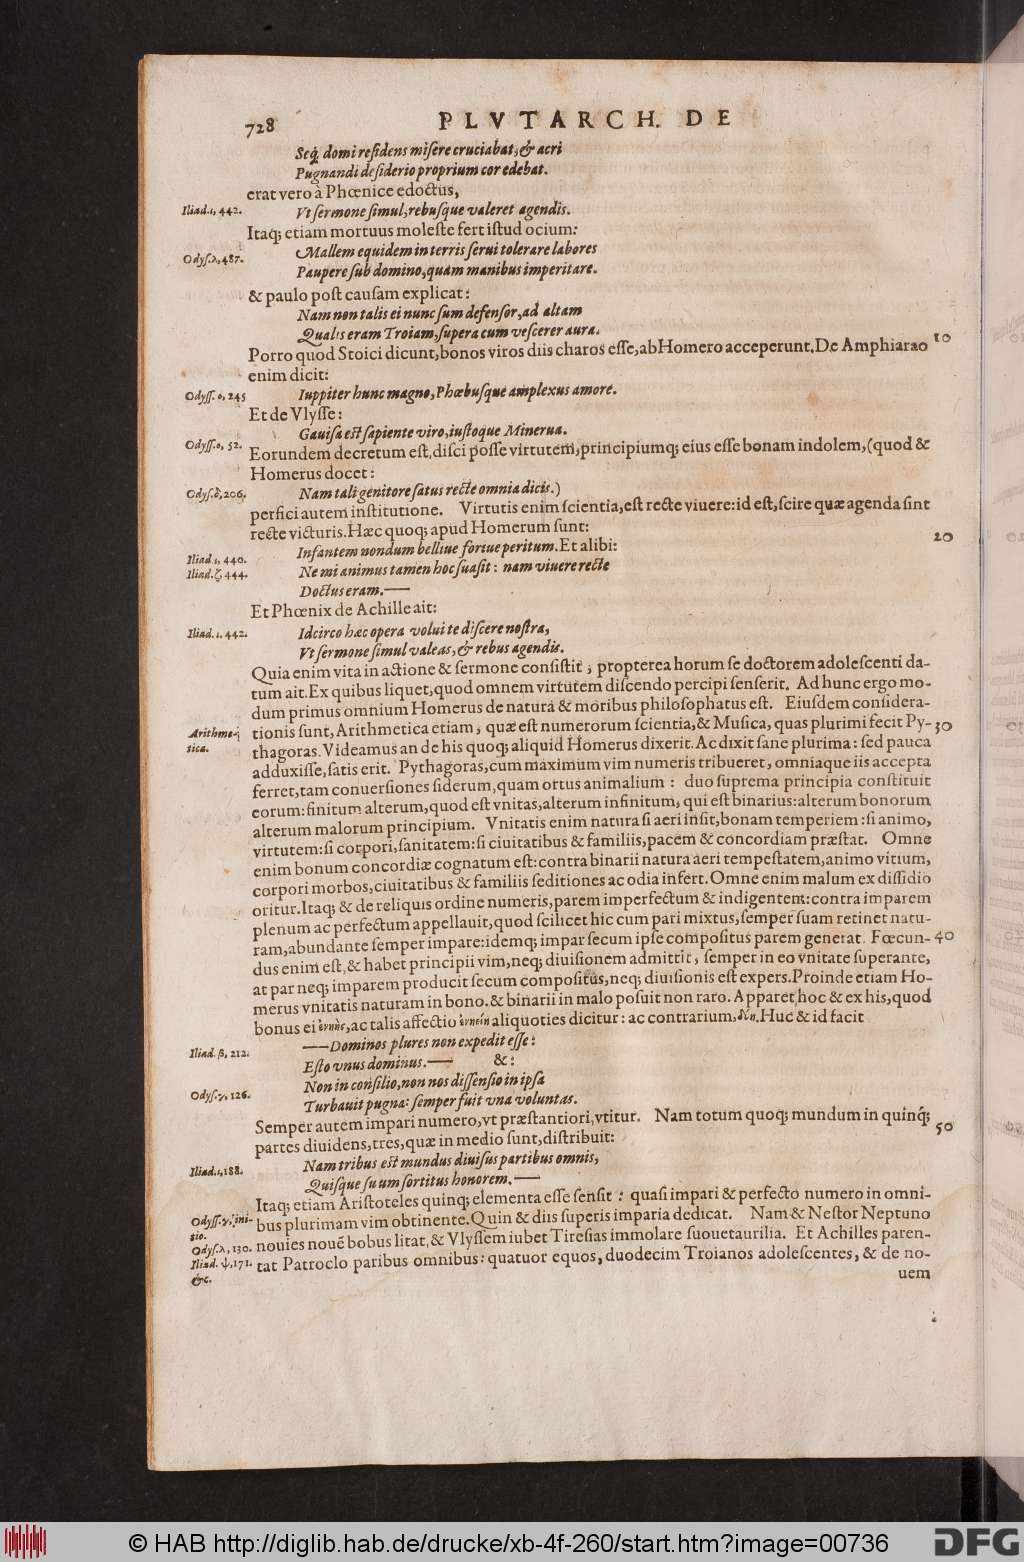 728 PLVTARCH. DE
Seq́ domi residens misere cruciabat, & acri
Pugnandi desiderio proprium cor edebat.
erat vero à Phœnice edoctus,
Iliad.ι, 442. Vt sermone simul, rebusque valeret agendis.
Itaq; etiam mortuus moleste fert istud ocium:
Mallem equidem in terris serui tolerare labores
Odys.λ, 487. Paupere sub domino, quàm manibus imperitare.
& paulo post causam explicat:
Nam non talis ei nunc sum defensor, ad altam
Qualis eram Troiam, supera cum vescerer aura.
Porro quod Stoici dicunt, bonos viros diis charos esse, ab Homero acceperunt. De Amphiarao 10
enim dicit:
Odyss. ο, 245 Iuppiter hunc magno, Phœbusque amplexus amore.
Et de Vlysse:
Gauisa est sapiente viro, iustoque Minerua.
Odyss.ο, 52. Eorundem decretum est, disci posse virtutem, principiumq; eius esse bonam indolem, (quod &
Homerus docet:
Odys.δ, 206. Nam tali genitore satus recte omnia dicis.)
perfici autem institutione. Virtutis enim scientia, est recte viuere: id est, scire quæ agenda sint
recte victuris. Hæc quoq; apud Homerum sunt: 20
Iliad.ι, 440. Infantem nondum belliue foriue peritum. Et alibi:
Iliad.ζ, 444. Ne mi animus tamen hoc suasit: nam viuere recte
Doctus eram.——
Et Phœnix de Achille ait:
Iliad.ι. 442. Idcirco hæc opera volui te discere nostra,
Vt sermone simul valeas, & rebus agendis.
Quia enim vita in actione & sermone consistit, propterea horum se doctorem adolescenti da-
tum ait. Ex quibus liquet, quod omnem virtutem discendo percipi senserit. Ad hunc ergo mo-
dum primus omnium Homerus de natura & moribus philosophatus est. Eiusdem considera-
Arithme- tionis sunt, Arithmetica etiam, quæ est numerorum scientia, & Musica, quas plurimi fecit Py- 30
tica. thagoras. Videamus an de his quoq; aliquid Homerus dixerit. Ac dixit sane plurima: sed pauca
adduxisse, satis erit. Pythagoras, cum maximum vim numeris tribueret, omniaque iis accepta
ferret, tam conuersiones siderum, quam ortus animalium: duo suprema principia constituit
eorum: finitum alterum, quod est vnitas, alterum infinitum, qui est binarius: alterum bonorum
alterum malorum principium. Vnitatis enim natura si aeri insit, bonam temperiem: si animo,
virtutem: si corpori, sanitatem: si ciuitatibus & familiis, pacem & concordiam præstat. Omne
enim bonum concordiæ cognatum est: contra binarii natura aeri tempestatem, animo vitium,
corpori morbos, ciuitatibus & familiis seditiones ac odia infert. Omne enim malum ex dissidio
oritur. Itaq; & de reliquis ordine numeris, parem imperfectum & indigentem: contra imparem
plenum ac perfectum appellauit, quod scilicet hic cum pari mixtus, semper suam retinet natu-
ram, abundante semper impare: idemq; impar secum ipse compositus parem generat. Fœcun- 40
dus enim est, & habet principii vim, neq; diuisionem admittit, semper in eo vnitate superante,
at par neq; imparem producit secum compositus, neq; diuisionis est expers. Proinde etiam Ho-
merus vnitatis naturam in bono. & binarii in malo posuit non raro. Apparet hoc & ex his, quod
bonus ei ἐνηὴς, ac talis affectio ἐνηείη aliquoties dicitur: ac contrarium, δύη. Huc & id facit
——Dominos plures non expedit esse:
Iliad. β, 212. Esto vnus dominus.—— &:
Non in consilio, non nos dissensio in ipsa
Odys.γ, 126. Turbauit pugna: semper fuit vna voluntas.
Semper autem impari numero, vt præstantiori, vtitur. Nam totum quoq; mundum in quinq́; 50
partes diuidens, tres, quæ in medio sunt, distribuit:
Iliad.ι, 188. Nam tribus est mundus diuisus partibus omnis,
Quisque suum sortitus honorem.——
Itaq; etiam Aristoteles quinq; elementa esse sensit: quasi impari & perfecto numero in omni-
Odyss.γ. ini- bus plurimam vim obtinente. Quin & diis superis imparia dedicat. Nam & Nestor Neptuno
tio.
Odys.λ, 130. nouies nouẽ bobus litat, & Vlyssem iubet Tiresias immolare suouetaurilia. Et Achilles paren-
Iliad. ψ, 171. tat Patroclo paribus omnibus: quatuor equos, duodecim Troianos adolescentes, & de no-
&c. uem
© HAB http://diglib.hab.de/drucke/xb-4f-260/start.htm?image=00736 DFG